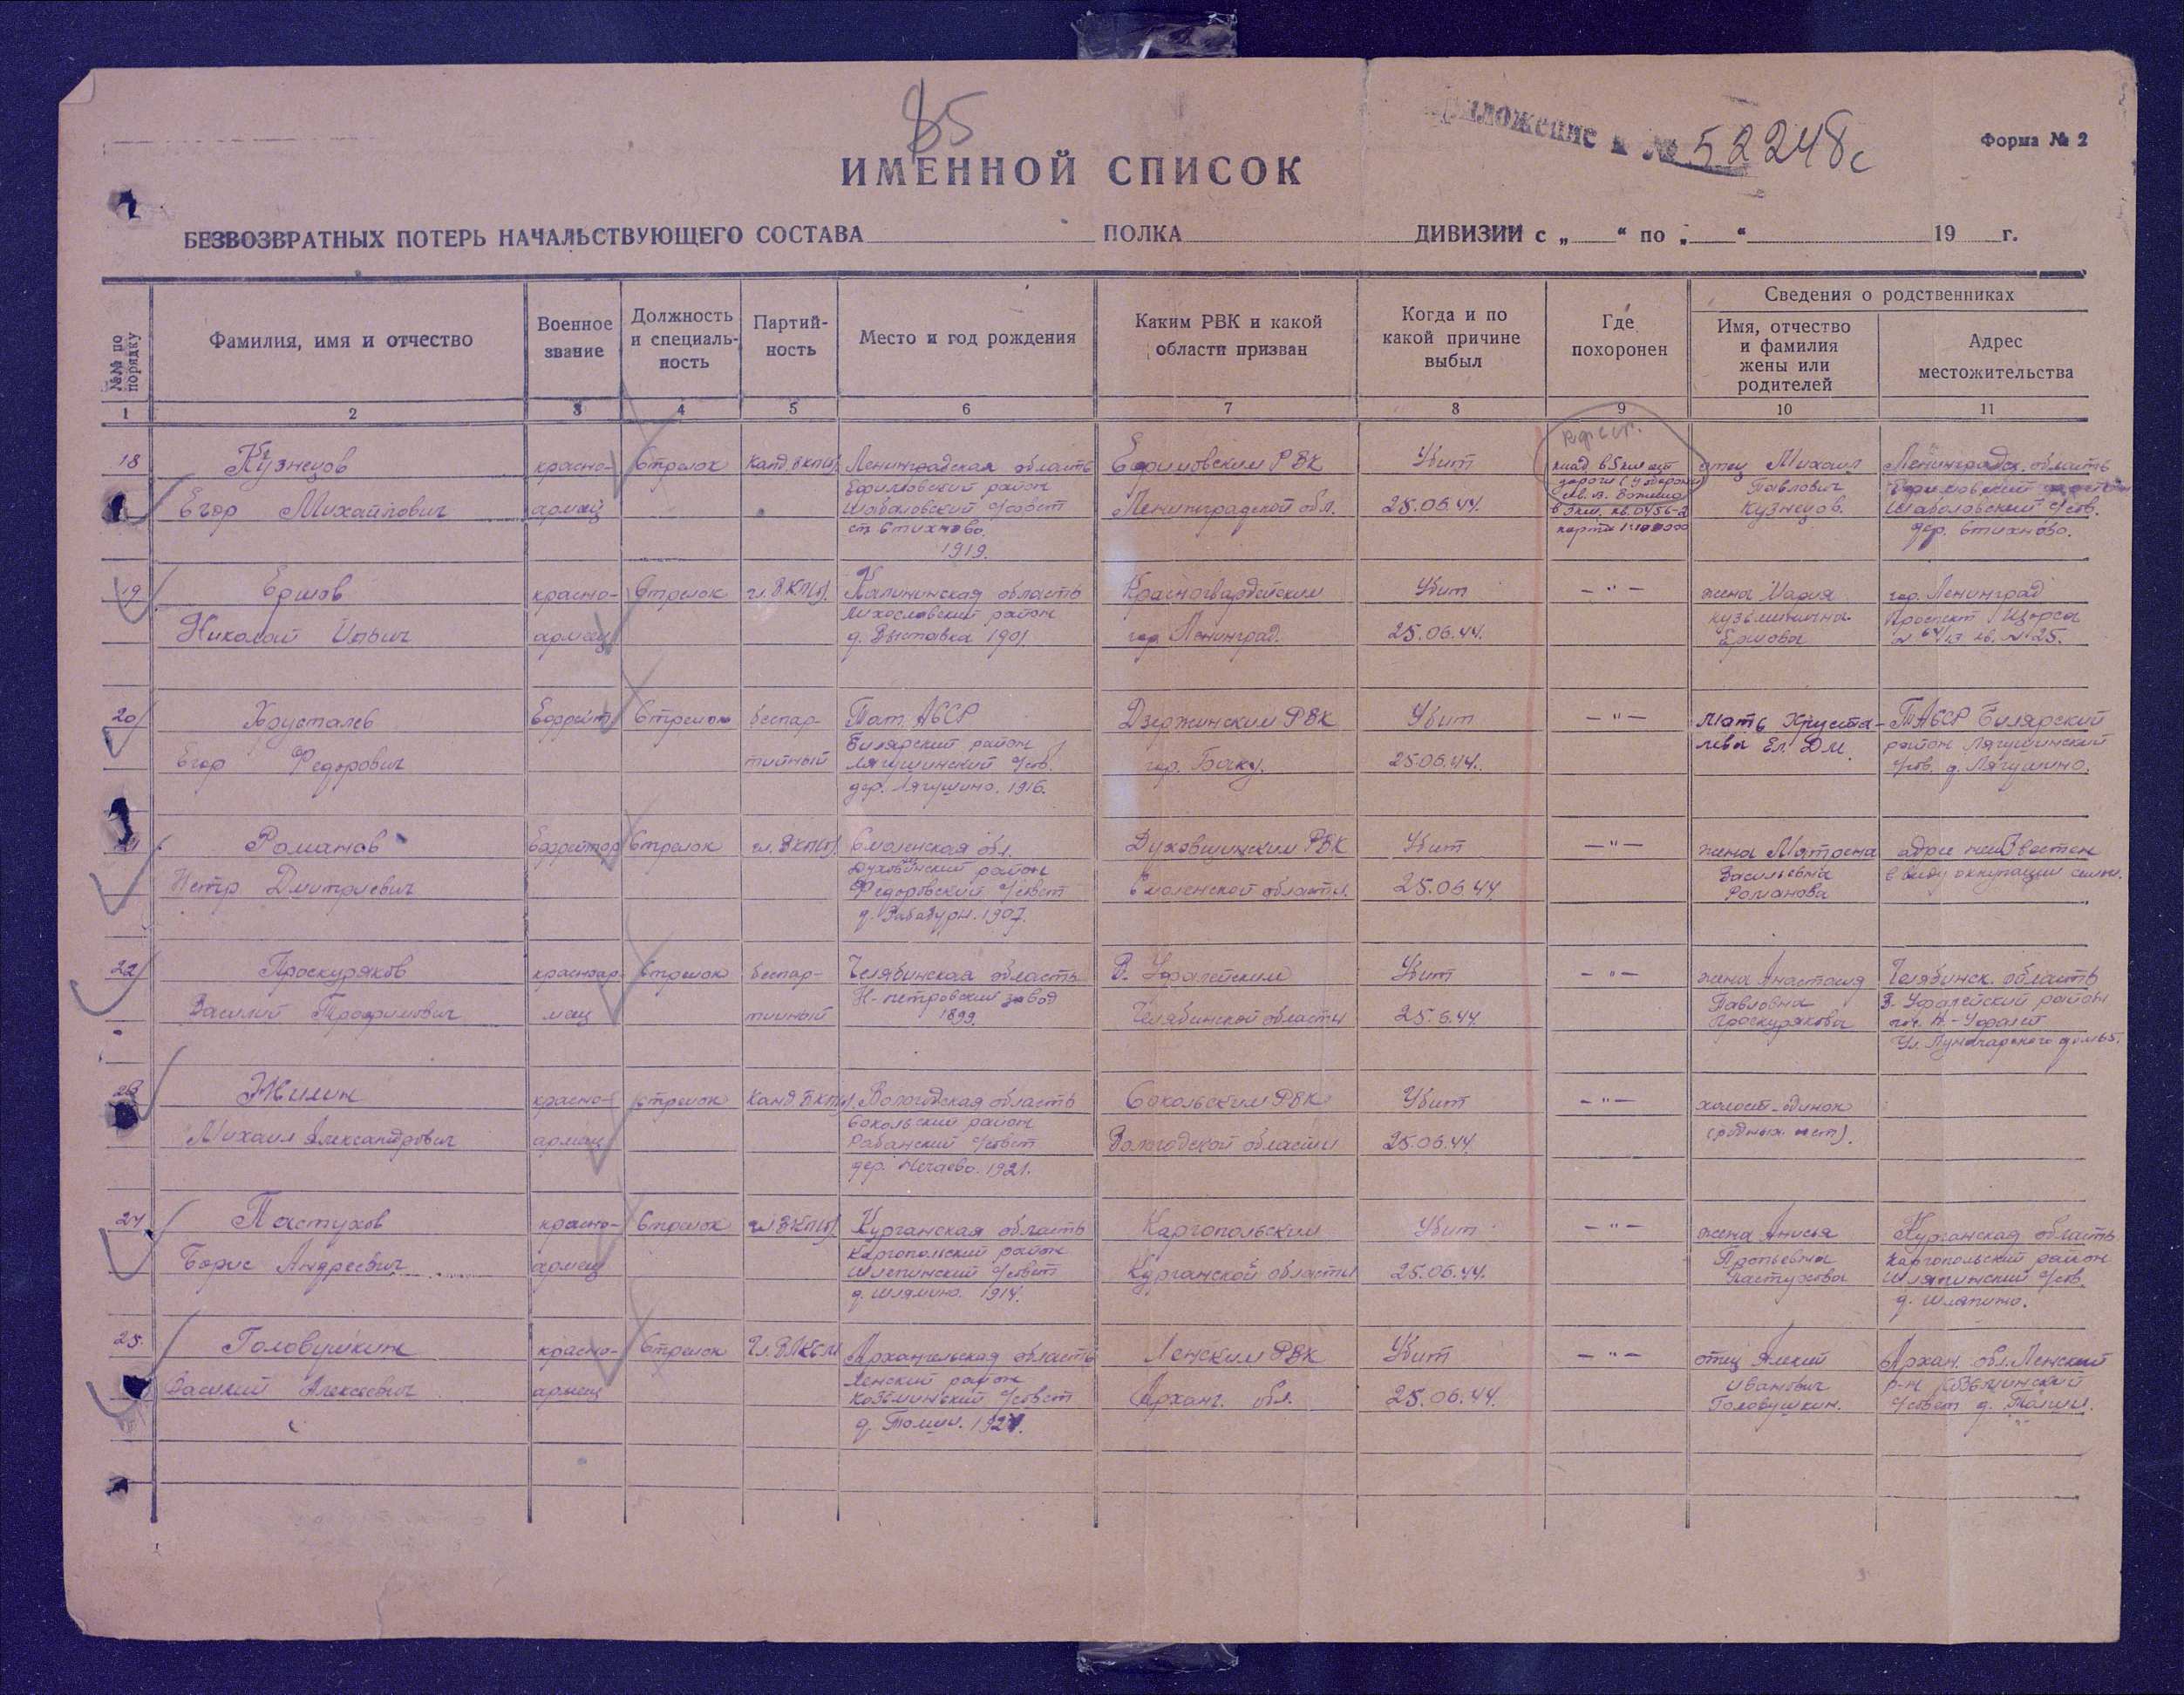 85
Приложение к № 52248с
Форма № 2
ИМЕННОЙ СПИСОК
БЕЗВОЗВРАТНЫХ ПОТЕРЬ НАЧАЛЬСТВУЮЩЕГО СОСТАВА ПОЛКА ДИВИЗИИ с „ “ по „ “ 19 г.
№№ по порядку
Фамилия, имя и отчество
Военное звание
Должность и специаль-ность
Партий-ность
Место и год рождения
Каким РВК и какой области призван
Когда и по какой причине выбыл
Где похоронен
Сведения о родственниках
Имя, отчество и фамилия жены или родителей
Адрес местожительства
1 2 3 4 5 6 7 8 9 10 11
18 Кузнецов красно- Стрелок Канд. ВКП(б) Ленинградская область Ефимовским РВК Убит отец Михаил Ленинградск. область
Егор Михайлович армеец Ефимовский район Ленинградской обл. 25.06.44. Павлович Ефимовский район
Шаболовский с/совет Кузнецов. Шаболовский с/сов.
ст. Стихново. дер. Стихново.
1919.
кв. 0456-2
карта 1:100000
19 Ершов красно- Стрелок чл. ВКП(б) Калининская область Красногвардейским Убит — " — жена Мария гор. Ленинград
Николай Ильич армеец Лихославский район гор. Ленинград. 25.06.44. Кузьминична Проспект Щорса
д. Выставка 1901. Ершова кв. № 25.
20 Хрусталев Ефрейт. Стрелок беспар- Тат. АССР Дзержинским РВК Убит — " — мать Хруста- ТАССР Билярский
Егор Федорович тийный Билярский район гор. Баку. 25.06.44. лева Ел. Дм. район Лягушинский
Лягушинский с/сов. с/сов. д. Лягушино.
дер. Лягушино. 1916.
21 Романов Ефрейтор Стрелок чл. ВКП(б) Смоленская обл. Духовщинским РВК Убит — " — жена Матрена адрес неизвестен
Петр Дмитриевич Духовщинский район Смоленской области. 25.06.44. Васильевна в виду оккупации
Федоровский с/совет Романова
1907.
22 Проскуряков красноар- Стрелок беспар- Челябинская область В. Уфалейским Убит — " — жена Анастасия Челябинск. область
Василий Трофимович меец тийный Н-петровский завод Челябинской области 25.6.44. Павловна В. Уфалейский район
1899. Проскурякова пос. Н-Уфалей
Ул. Луначарского
23 Жилин красно- стрелок Канд. ВКП(б). Вологодская область Сокольским РВК Убит — " — холост-одинок
Михаил Александрович армеец Сокольский район Вологодской области 25.06.44. (родных нет).
Рабанский с/совет
дер. Нечаево. 1921.
24 Пастухов красно- Стрелок чл. ВКП(б) Курганская область Каргопольским Убит — " — жена Анисья Курганская область
Борис Андреевич армеец Каргопольский район Курганской области 25.06.44. Каргопольский район
с/совет Пастухова с/сов.
1914. д. Шляпино.
25. Головушкин красно- Стрелок Чл. ВЛКСМ Архангельская область Ленским РВК Убит — " — отец Алексей Архан. обл. Ленский
Василий Алексеевич армеец Ленский район Арханг. обл. 25.06.44. Иванович р-н Козьминский
Козьминский с/совет Головушкин. с/совет